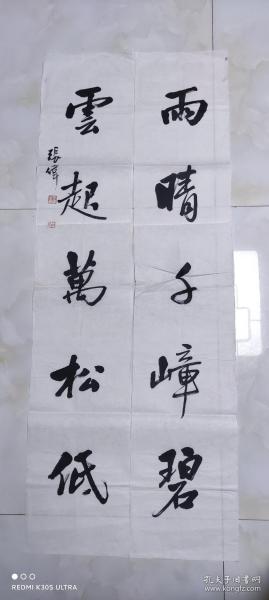 雨晴千嶂碧
雲起萬松低
張偉
REDMI K30S ULTRA
孔夫子旧书网